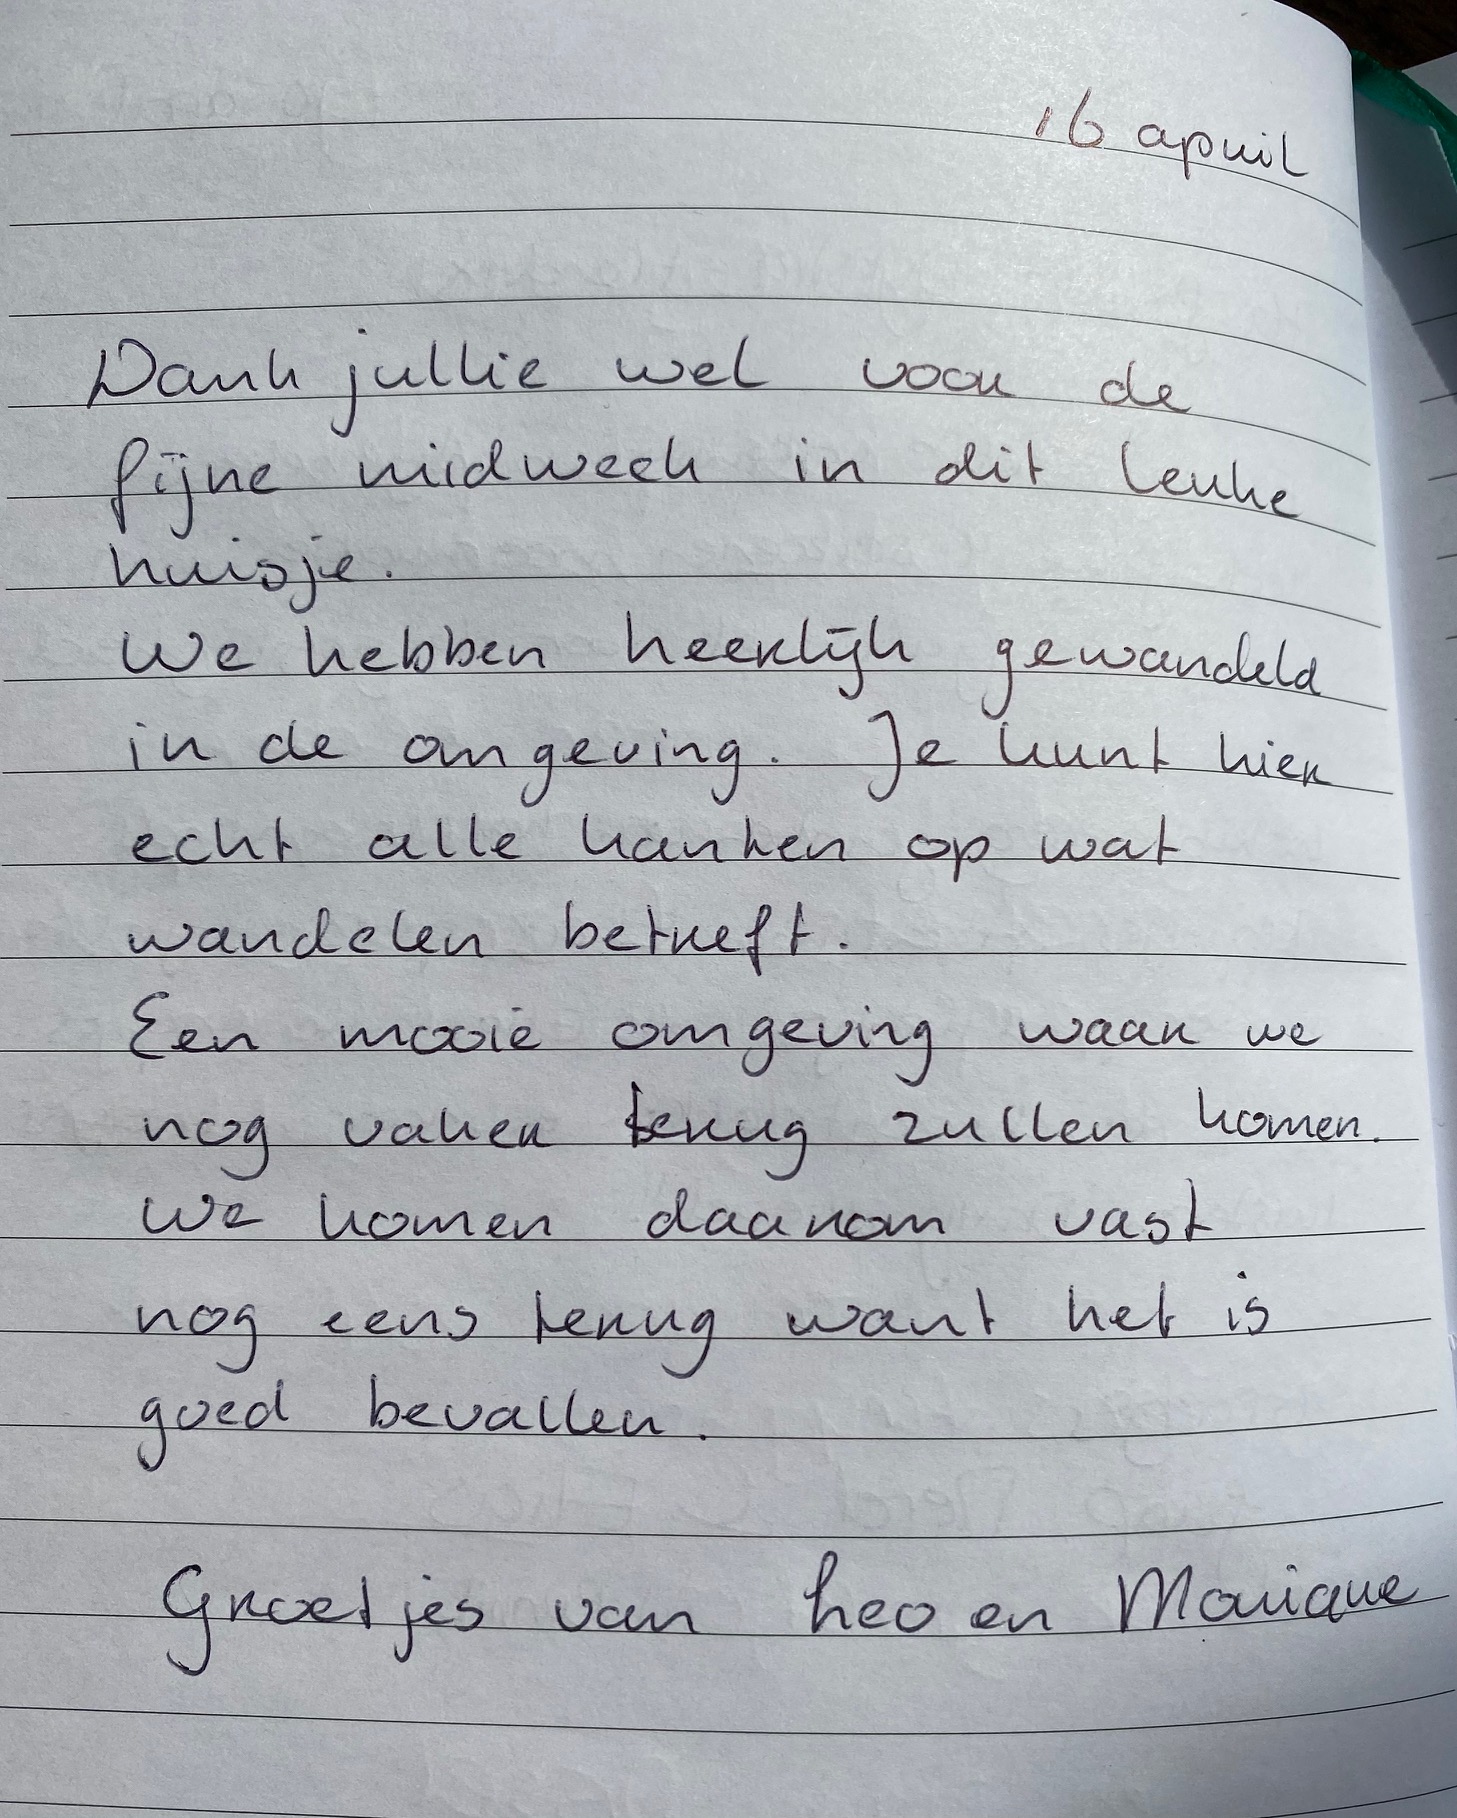 16 april
Dank jullie wel voor de
fijne midweek in dit leuke
huisje.
We hebben heerlijk gewandeld
in de omgeving. Je kunt hier
echt alle kanten op wat
wandelen betreft.
Een mooie omgeving waar we
nog vaker terug zullen komen.
We komen daarom vast
nog eens terug want het is
goed bevallen.
Groetjes van Leo en Monique